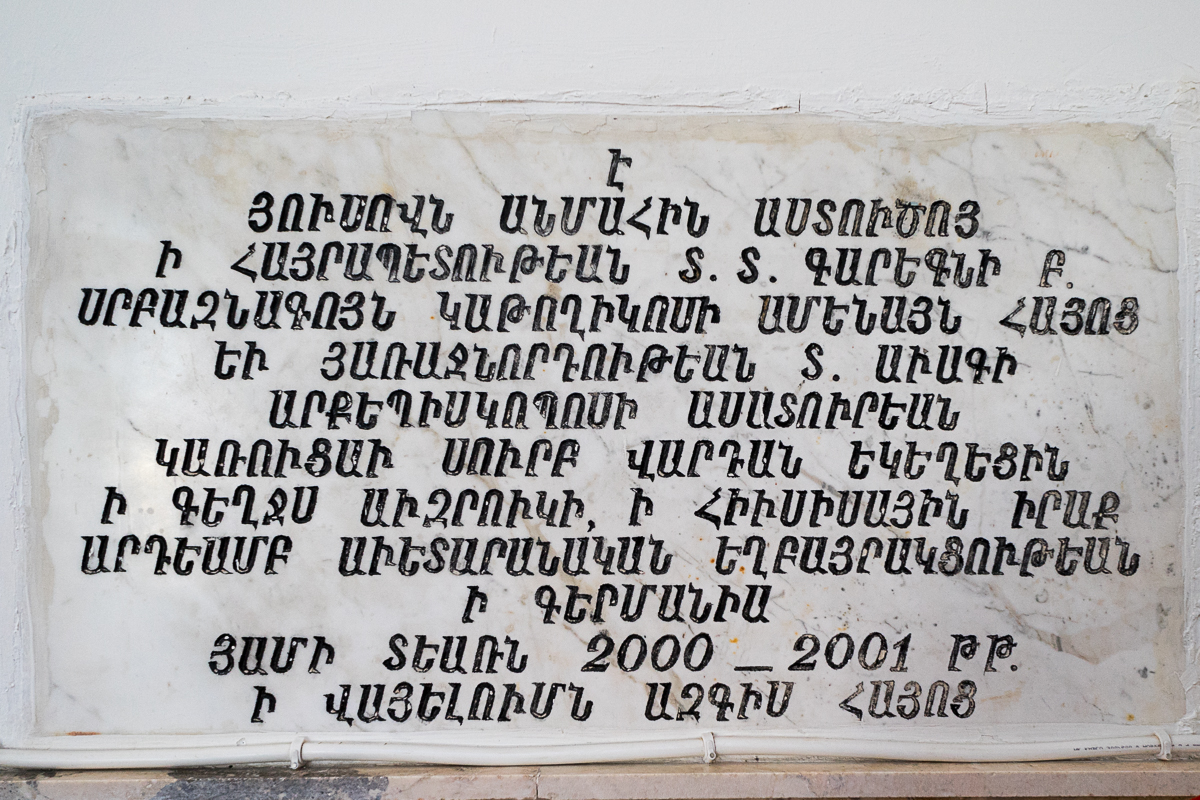 Է
ՅՈՒՍՈՎՆ ԱՆՄԱՀԻՆ ԱՍՏՈՒԾՈՅ
Ի ՀԱՅՐԱՊԵՏՈՒԹԵԱՆ Տ. Տ. ԳԱՐԵԳՆԻ Բ.
ՍՐԲԱԶՆԱԳՈՅՆ ԿԱԹՈՂԻԿՈՍԻ ԱՄԵՆԱՅՆ ՀԱՅՈՑ
ԵՒ ՅԱՌԱՋՆՈՐԴՈՒԹԵԱՆ Տ. ԱՒԱԳԻ
ԱՐՔԵՊԻՍԿՈՊՈՍԻ ԱՍԱՏՈՒՐԵԱՆ
ԿԱՌՈՒՑԱՒ ՍՈՒՐԲ ՎԱՐԴԱՆ ԵԿԵՂԵՑԻՆ
Ի ԳԵՂՋՍ ԱՒԶՐՈՒԿԻ, Ի ՀԻՒՍԻՍԱՅԻՆ ԻՐԱՔ
ԱՐԴԵԱՄԲ ԱՒԵՏԱՐԱՆԱԿԱՆ ԵՂԲԱՅՐԱԿՑՈՒԹԵԱՆ
Ի ԳԵՐՄԱՆԻԱ
ՅԱՄԻ ՏԵԱՌՆ 2000 _ 2001 ԹԹ.
Ի ՎԱՅԵԼՈՒՄՆ ԱԶԳԻՍ ՀԱՅՈՑ